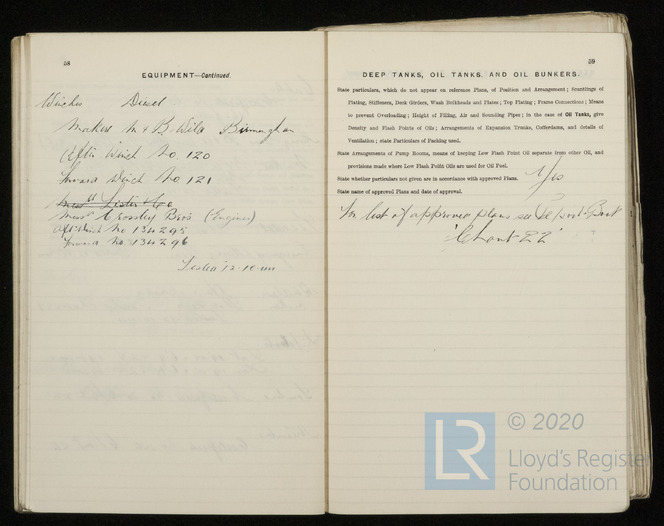 58
EQUIPMENT—Continued.
Winches Diesel
Makers M & B Wild Birmingham
After Winch No. 120
Forward Winch No 121
Messrs Crossley Bros (Engines)
Aft Winch No 134295
Forward No. 134296
Tested 12-10-
59
DEEP TANKS, OIL TANKS, AND OIL BUNKERS.
State particulars, which do not appear on reference Plans, of Position and Arrangement; Scantlings of
Plating, Stiffeners, Deck Girders, Wash Bulkheads and Plates; Top Plating; Frame Connections; Means
to prevent Overloading; Height of Filling, Air and Sounding Pipes; in the case of Oil Tanks, give
Density and Flash Points of Oils; Arrangements of Expansion Trunks, Cofferdams, and details of
Ventilation; state Particulars of Packing used.
State Arrangements of Pump Rooms, means of keeping Low Flash Point Oil separate from other Oil, and
provisions made where Low Flash Point Oils are used for Oil Fuel.
State whether particulars not given are in accordance with approved Plans. Yes
State name of approved Plans and date of approval.
For list of approved plans see Report Book
22"
© 2020
LR
Lloyd's Register
Foundation